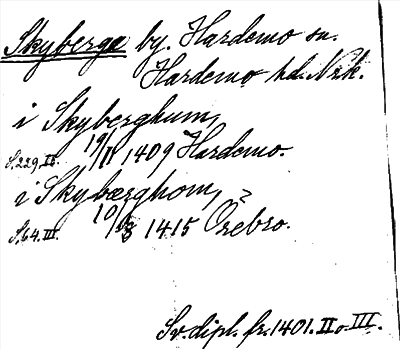 Skyberga by. Hardemo sn.
Hardemo hd. Nrk.
i Skyberghum,
S. 229. II. 19/11 1409 Hardemo.
i Skybærghom,
S. 64. III. 10/ 1415 Örebro.
Sv. dipl. fr. 1401. II o. III.